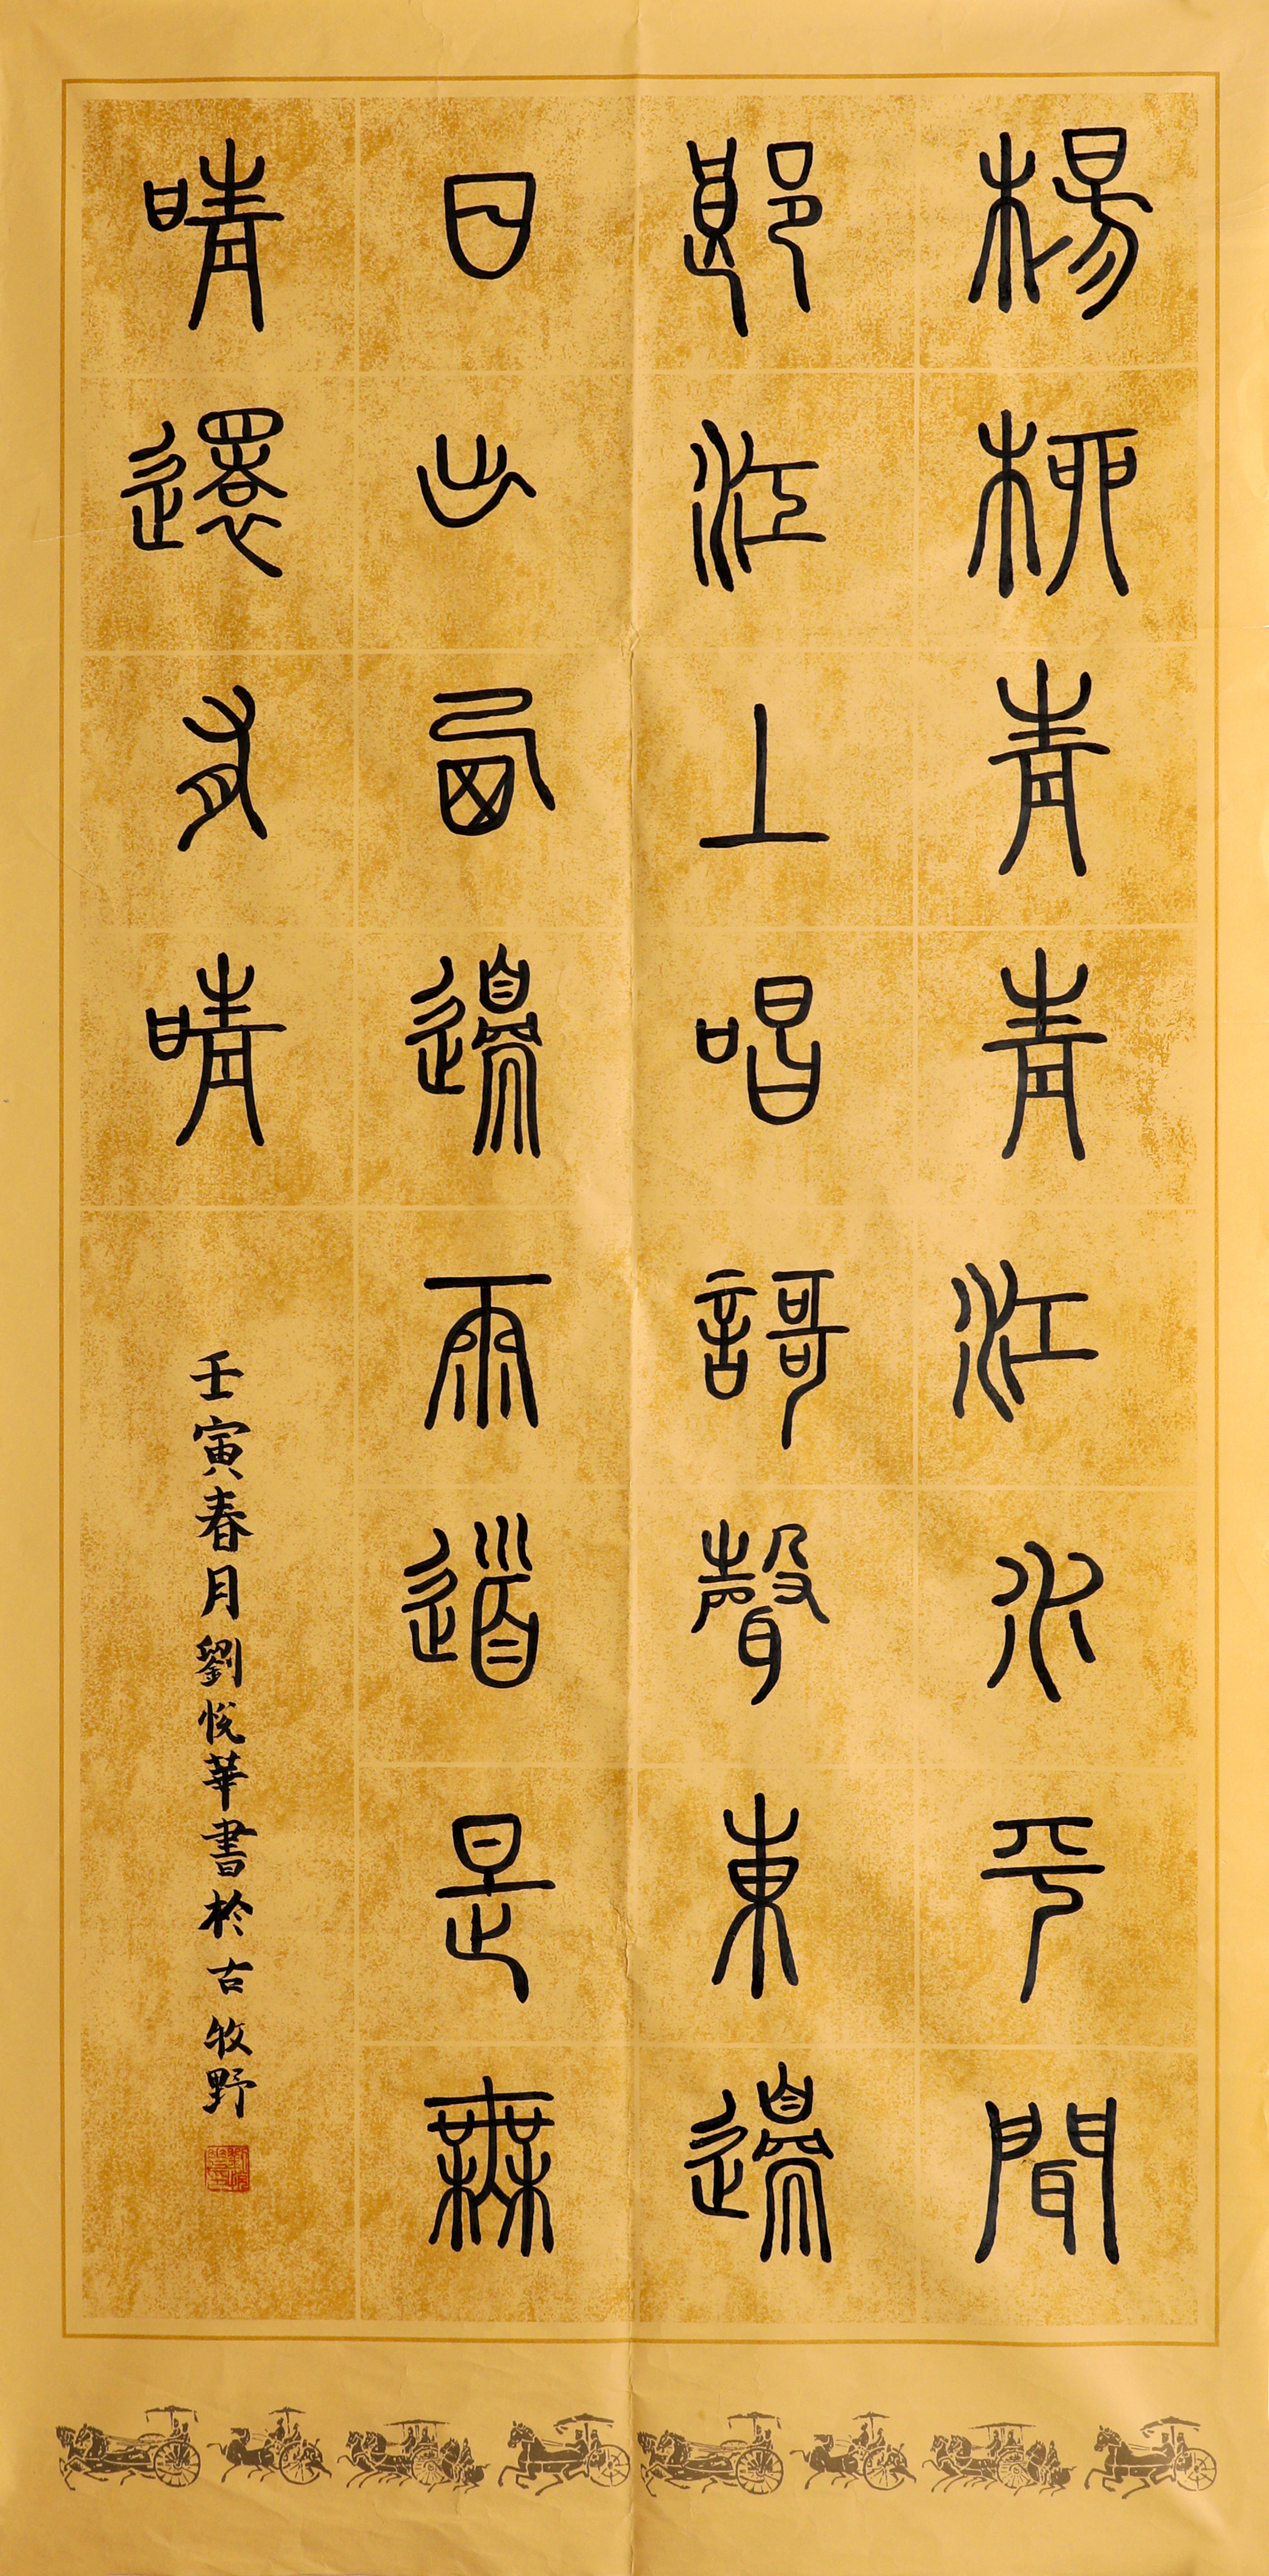 楊柳青青江水平聞
郎江上唱謌聲東邊
日出西邊雨道是無
晴還有晴
壬寅春月劉悅華書於古牧野